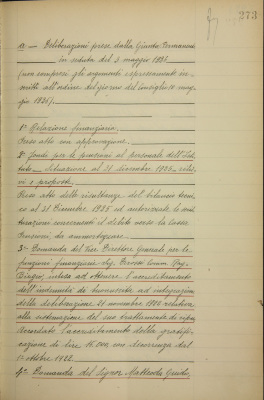 273
10 — Deliberazioni prese dalla Giunta Permanente
in seduta del 5 maggio 1926
(non compresi gli argomenti espressamente in-
scritti all'ordine del giorno del Consiglio 18 mag-
gio 1926).
1º Relazione finanziaria.
Preso atto con approvazione.
2º Fondo per le pensioni al personale dell'Isti-
tuto — Situazione al 31 dicembre 1925,
e proposte.
Preso atto delle risultanze del bilancio tecni-
co al 31 Dicembre 1925 ed autorizzate le
concernenti il debito verso la Cassa
Pensioni, da ammortizzare.
3º Domanda del Vice Direttore Generale per le
funzioni finanziarie Sig. Comm. Rag.
Biagio, intesa ad ottenere il
dell'indennità di ad integrazione
della deliberazione 21 novembre 1922 relativa
alla sistemazione del suo trattamento di
Accordato della gratifi-
cazione di lire 15.000 con decorrenza dal
1º ottobre 1922.
4º Domanda del Signor Guido,